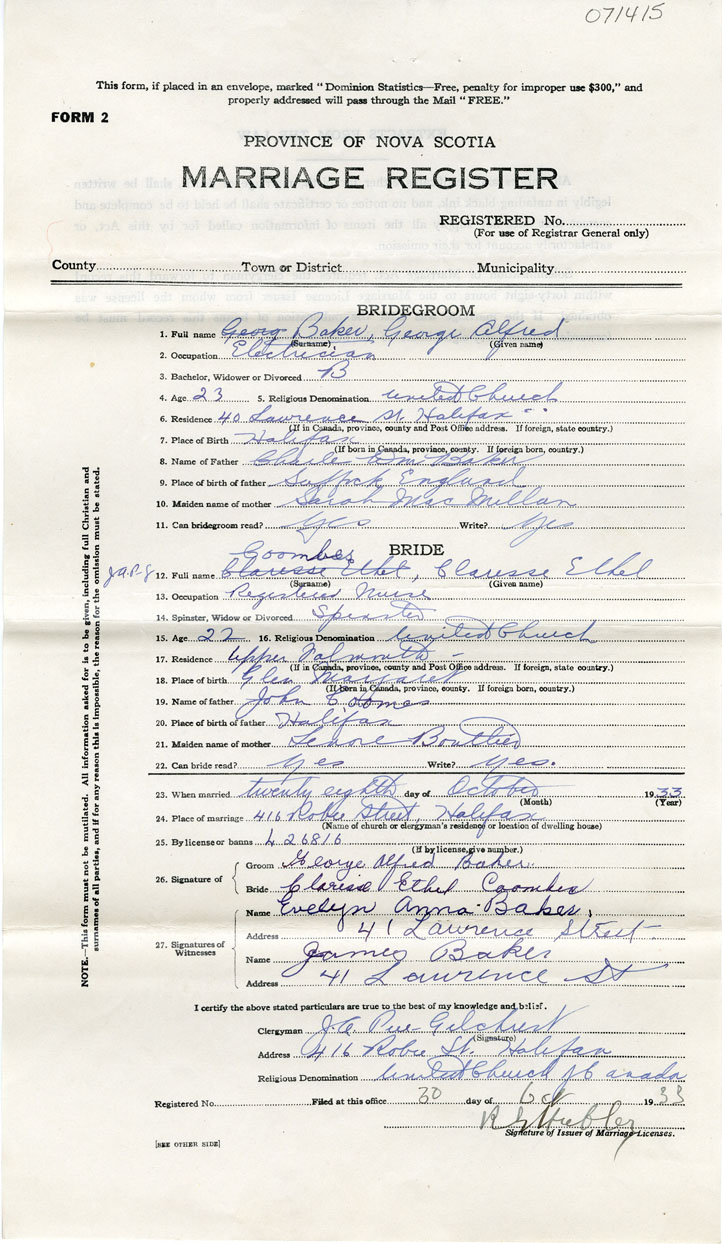 071415
This form, if placed in an envelope, marked "Dominion Statistics—Free, penalty for improper use $300," and
properly addressed will pass through the Mail "FREE."
FORM 2
PROVINCE OF NOVA SCOTIA
MARRIAGE REGISTER
REGISTERED No.
(For use of Registrar General only)
County Town or District Municipality
BRIDEGROOM
1. Full name Georg Baker, George Alfred
(Surname) (Given name)
2. Occupation Electrician
3. Bachelor, Widower or Divorced B
4. Age 23 5. Religious Denomination United Church
6. Residence 40 Lawrence St. Halifax " "
(If in Canada, province, county and Post Office address. If foreign, state country.)
7. Place of Birth Halifax
(If born in Canada, province, county. If foreign born, country.)
8. Name of Father Charles Baker
9. Place of birth of father Suffock England
10. Maiden name of mother Sarah MacMillan
11. Can bridegroom read? Yes Write? Yes
BRIDE
Coombes
J.A.P-G
12. Full name Claresse Ethel, Claresse Ethel
(Surname) (Given name)
13. Occupation Registered Nurse
14. Spinster, Widow or Divorced Spinster
15. Age 22 16. Religious Denomination United Church
17. Residence Upper Falmouth
(If in Canada, province, county and Post Office address. If foreign, state country.)
18. Place of birth Glen Margaret
(If born in Canada, province, county. If foreign born, country.)
19. Name of father John
20. Place of birth of father Halifax
21. Maiden name of mother Lenore Boutlier
22. Can bride read? Yes Write? Yes.
23. When married twenty eighth day of October 1933
(Month) (Year)
24. Place of marriage 416 Robie Street, Halifax
(Name of church or clergyman's residence or location of dwelling house)
25. By license or banns L 26816
(If by license, give number.)
26. Signature of
Groom George Alfred Baker.
Bride Clarisse Ethel Coombes
27. Signatures of Witnesses
Name Evelyn Anna Baker,
Address 41 Lawrence Street
Name James Baker
Address 41 Lawrence St
I certify the above stated particulars are true to the best of my knowledge and belief.
Clergyman J.A. Pue-Gilchrist
(Signature)
Address 416 Robie St. Halifax
Religious Denomination United Church of Canada
Registered No. Filed at this office 30 day of Oct 1933
Signature of Issuer of Marriage Licenses.
[SEE OTHER SIDE]
NOTE.—This form must not be mutilated. All information asked for is to be given, including full Christian and
surnames of all parties, and if for any reason this is impossible, the reason for the omission must be stated.